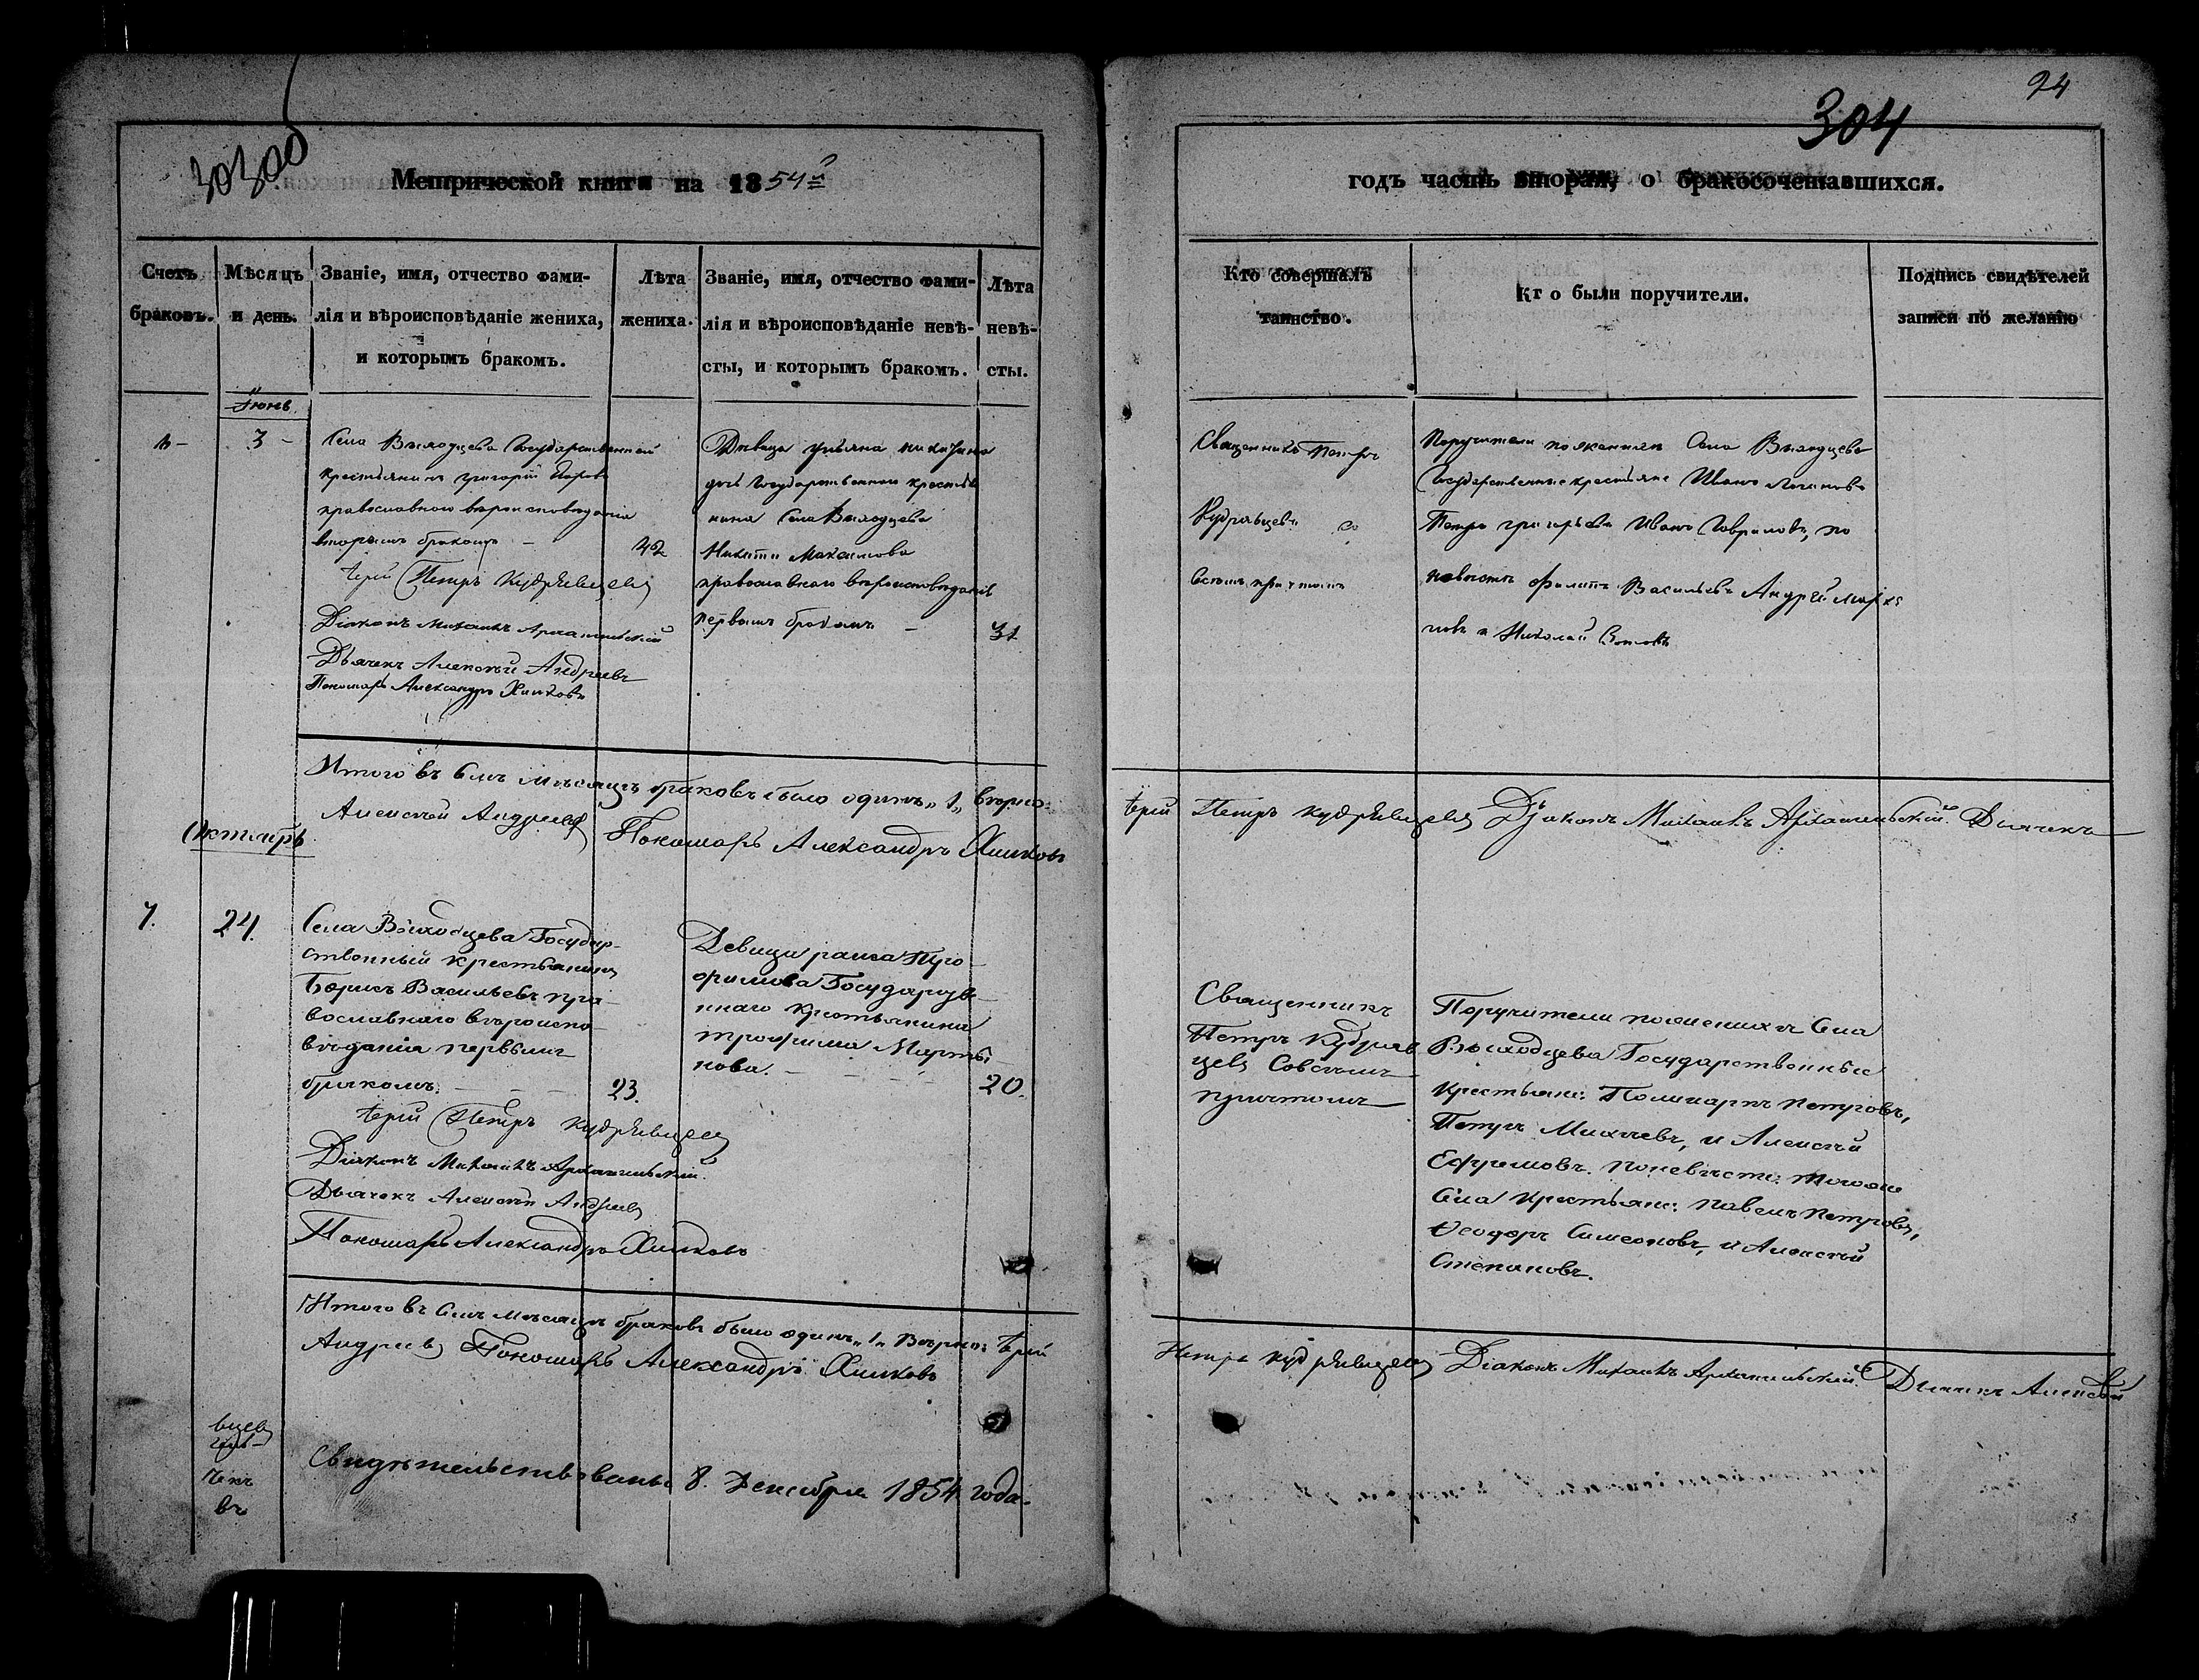 24
304
30300
Метрической книги на 1854й
годъ часть вторая, о бракосочетавшихся.
Счетъ браковъ.
Мѣсяцъ и день.
Званіе, имя, отчество фами-
лія и вѣроисповѣданіе жениха,
и которымъ бракомъ.
Лѣта
жениха.
Званіе, имя, отчество фами-
лія и вѣроисповѣданіе невѣ-
сты, и которымъ бракомъ.
Лѣта
невѣ-
сты.
Кто совершалъ
таинство.
Кто были поручители.
Подпись свидѣтелей
записи по желанію
Іюнь
3
Села Выходцева Государственной
крестьянинъ Григорій
православнаго вероисповѣданія
вторымъ бракомъ
42
Іерей Петръ Кудрявцевъ
Діаконъ Михаилъ Архангельскій
Дьячекъ Алексѣй Андреевъ
Пономарь Александръ Хилковъ
Девица Ульяна Никитина
дочь Государственнаго крестья
нина Села Выходцева
Никиты Максимова
православнаго вероисповѣданія
первымъ бракомъ
31
Священникъ Петръ
Кудрявцевъ со
всемъ причтомъ
Поручители по женихѣ Села Выходцева
Государственные крестьяне Иванъ Логиновъ
Петръ Григорьевъ Иванъ Гавриловъ, по
невѣстѣ Филипъ Васильевъ Андрей Марты
новъ и Николай
Итого въ семъ мѣсяцѣ браковъ было одинъ „1„ Вѣрно:
Іерей Петръ Кудрявцевъ Діаконъ Михаилъ Архангельскій. Дьячекъ
Алексѣй Андреевъ Пономарь Александръ Хилковъ
Октябрь
7.
24.
Села Выходцева Государ-
ственный крестьянинъ
Борисъ Васильевъ пра-
вославнаго вѣроиспо-
вѣданія первымъ
бракомъ.
23.
Іерей Петръ Кудрявцевъ
Діаконъ Михаилъ Архангельскій.
Дьячекъ Алексѣй Андреевъ
Пономарь Александръ Хилковъ
Девица раиса Тро-
фимова Государстве-
ннаго крестьянина
Трофима Марты-
нова.
20.
Священникъ
Петръ Кудряв
цевъ Совсѣмъ
причтомъ
Поручители поженихѣ Села
Выходцева Государственные
крестьяне: Поликарпъ Петровъ,
Петръ Михѣевъ, и Алексѣй
Ефремовъ. Поневѣстѣ: тогоже
Села крестьяне: Павелъ Петровъ,
Ѳеодоръ Симеоновъ, и Алексѣй
Степановъ.
Итого въ семъ мѣсяцѣ браковъ было одинъ „1„ Вѣрно: Іерей
Петръ Кудрявцевъ Діаконъ Михаилъ Архангельскій. Дьячекъ Алексѣй
Андреевъ Пономарь Александръ Хилковъ
вцевъ
чекъ
въ
Свидѣтельствованы 8. Декабря 1854 года.